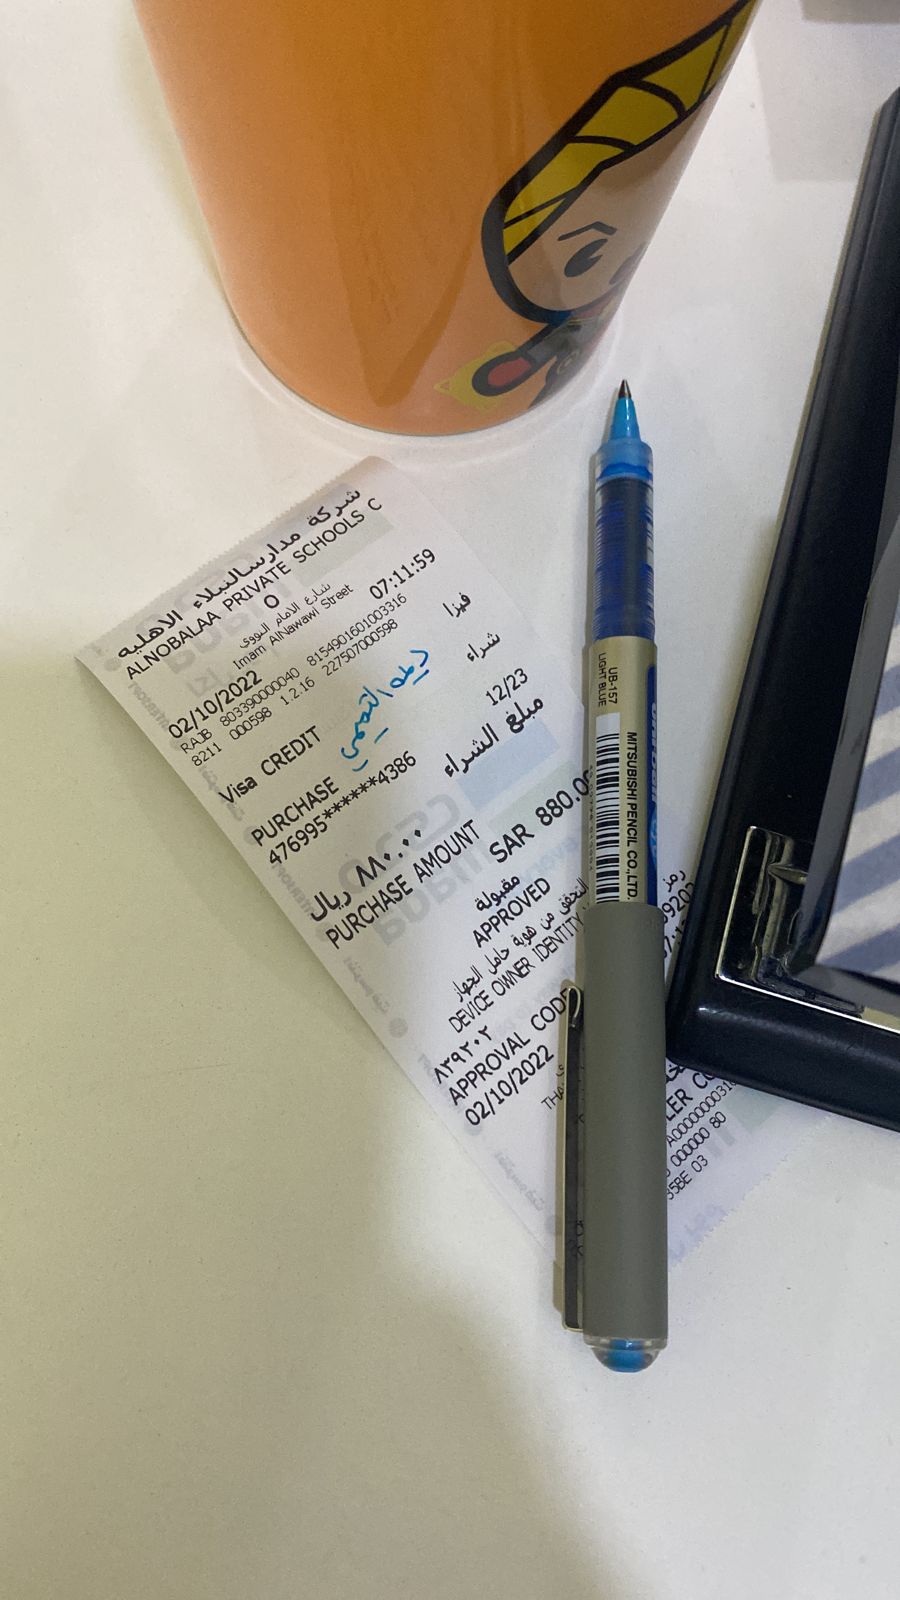 شركة مدارس النبلاء الاهليه
ALNOBALAA PRIVATE SCHOOLS C
O
شارع الامام النووى
Imam AlNawawi Street
02/10/2022 07:11:59
RAJB 803390000040 8154901601003316
8211 000598 1.2.16 227507000598
Visa CREDIT فيزا
PURCHASE شراء
476995******4386 12/23
ريال ٨٨٠.٠٠ مبلغ الشراء
PURCHASE AMOUNT SAR 880.0
مقبولة
APPROVED
التحقق من هوية حامل الجهاز
DEVICE OWNER IDENTITY
٨٣٩٢٠٢ رمز
APPROVAL CODE
02/10/2022
000000 80
35BE 03
UB-157
LIGHT BLUE
MITSUBISHI PENCIL CO.,LTD.